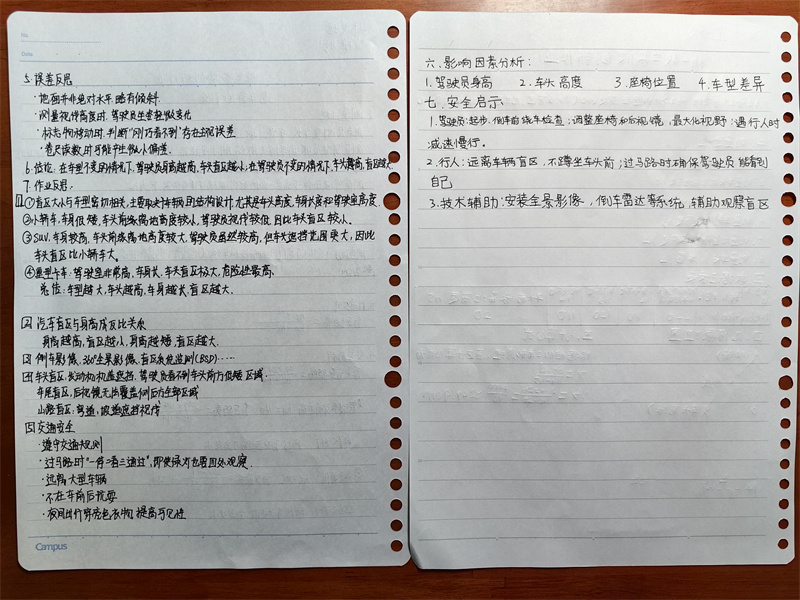 No.
Date
5. 误差反思
· 地面并非绝对水平,略有倾斜.
· 测量视线高度时,驾驶员坐姿轻微变化
· 标志物移动时,判断"刚巧看不到"存在主观误差
· 卷尺读数时可能产生微小偏差.
6. 结论:在车型不变的情况下,驾驶员身高越高,车头盲区越小,在驾驶员不变的情况下,车头越高,盲区越大.
7. 作业反思:
①盲区大小与车型密切相关,主要取决车辆的结构设计,尤其是车头高度,车身长度和驾驶室高度
②小轿车,车身低矮,车头前缘离地高度较小,驾驶员视线较低,因此车头盲区较小.
③SUV:车身较高,车头前缘离地高度较大,驾驶员虽然较高,但车头遮挡范围更大,因此
车头盲区比小轿车大。
④重型卡车:驾驶室非常高,车身长,车头盲区极大,危险性最高.
总结:车型越大,车头越高,车身越长,盲区越大.
[2] 汽车盲区与身高成反比关系
身高越高,盲区越小,身高越矮,盲区越大.
[3] 倒车影像、360°全景影像、盲区系统监测(BSD)……
[4] 车头盲区:发动机机盖遮挡,驾驶员看不到车头前方低矮区域.
车尾盲区:后视镜无法覆盖侧后方全部区域
山路盲区:弯道、坡道遮挡视线
[5] 交通安全
· 遵守交通规则
· 过马路时"一停二看三通过",即使绿灯也要四处观察.
· 远离大型车辆
· 不在车前后玩耍
· 夜间出行穿亮色衣物,提高可见性
Campus
六、影响因素分析:
1. 驾驶员身高 2. 车头高度 3. 座椅位置 4. 车型差异
七、安全启示
1. 驾驶员:起步、倒车前绕车检查;调整座椅和后视镜,最大化视野;遇行人时
减速慢行。
2. 行人:远离车辆盲区,不蹲坐车头前;过马路时确保驾驶员能看到
自己
3. 技术辅助:安装全景影像,倒车雷达等系统,辅助观察盲区